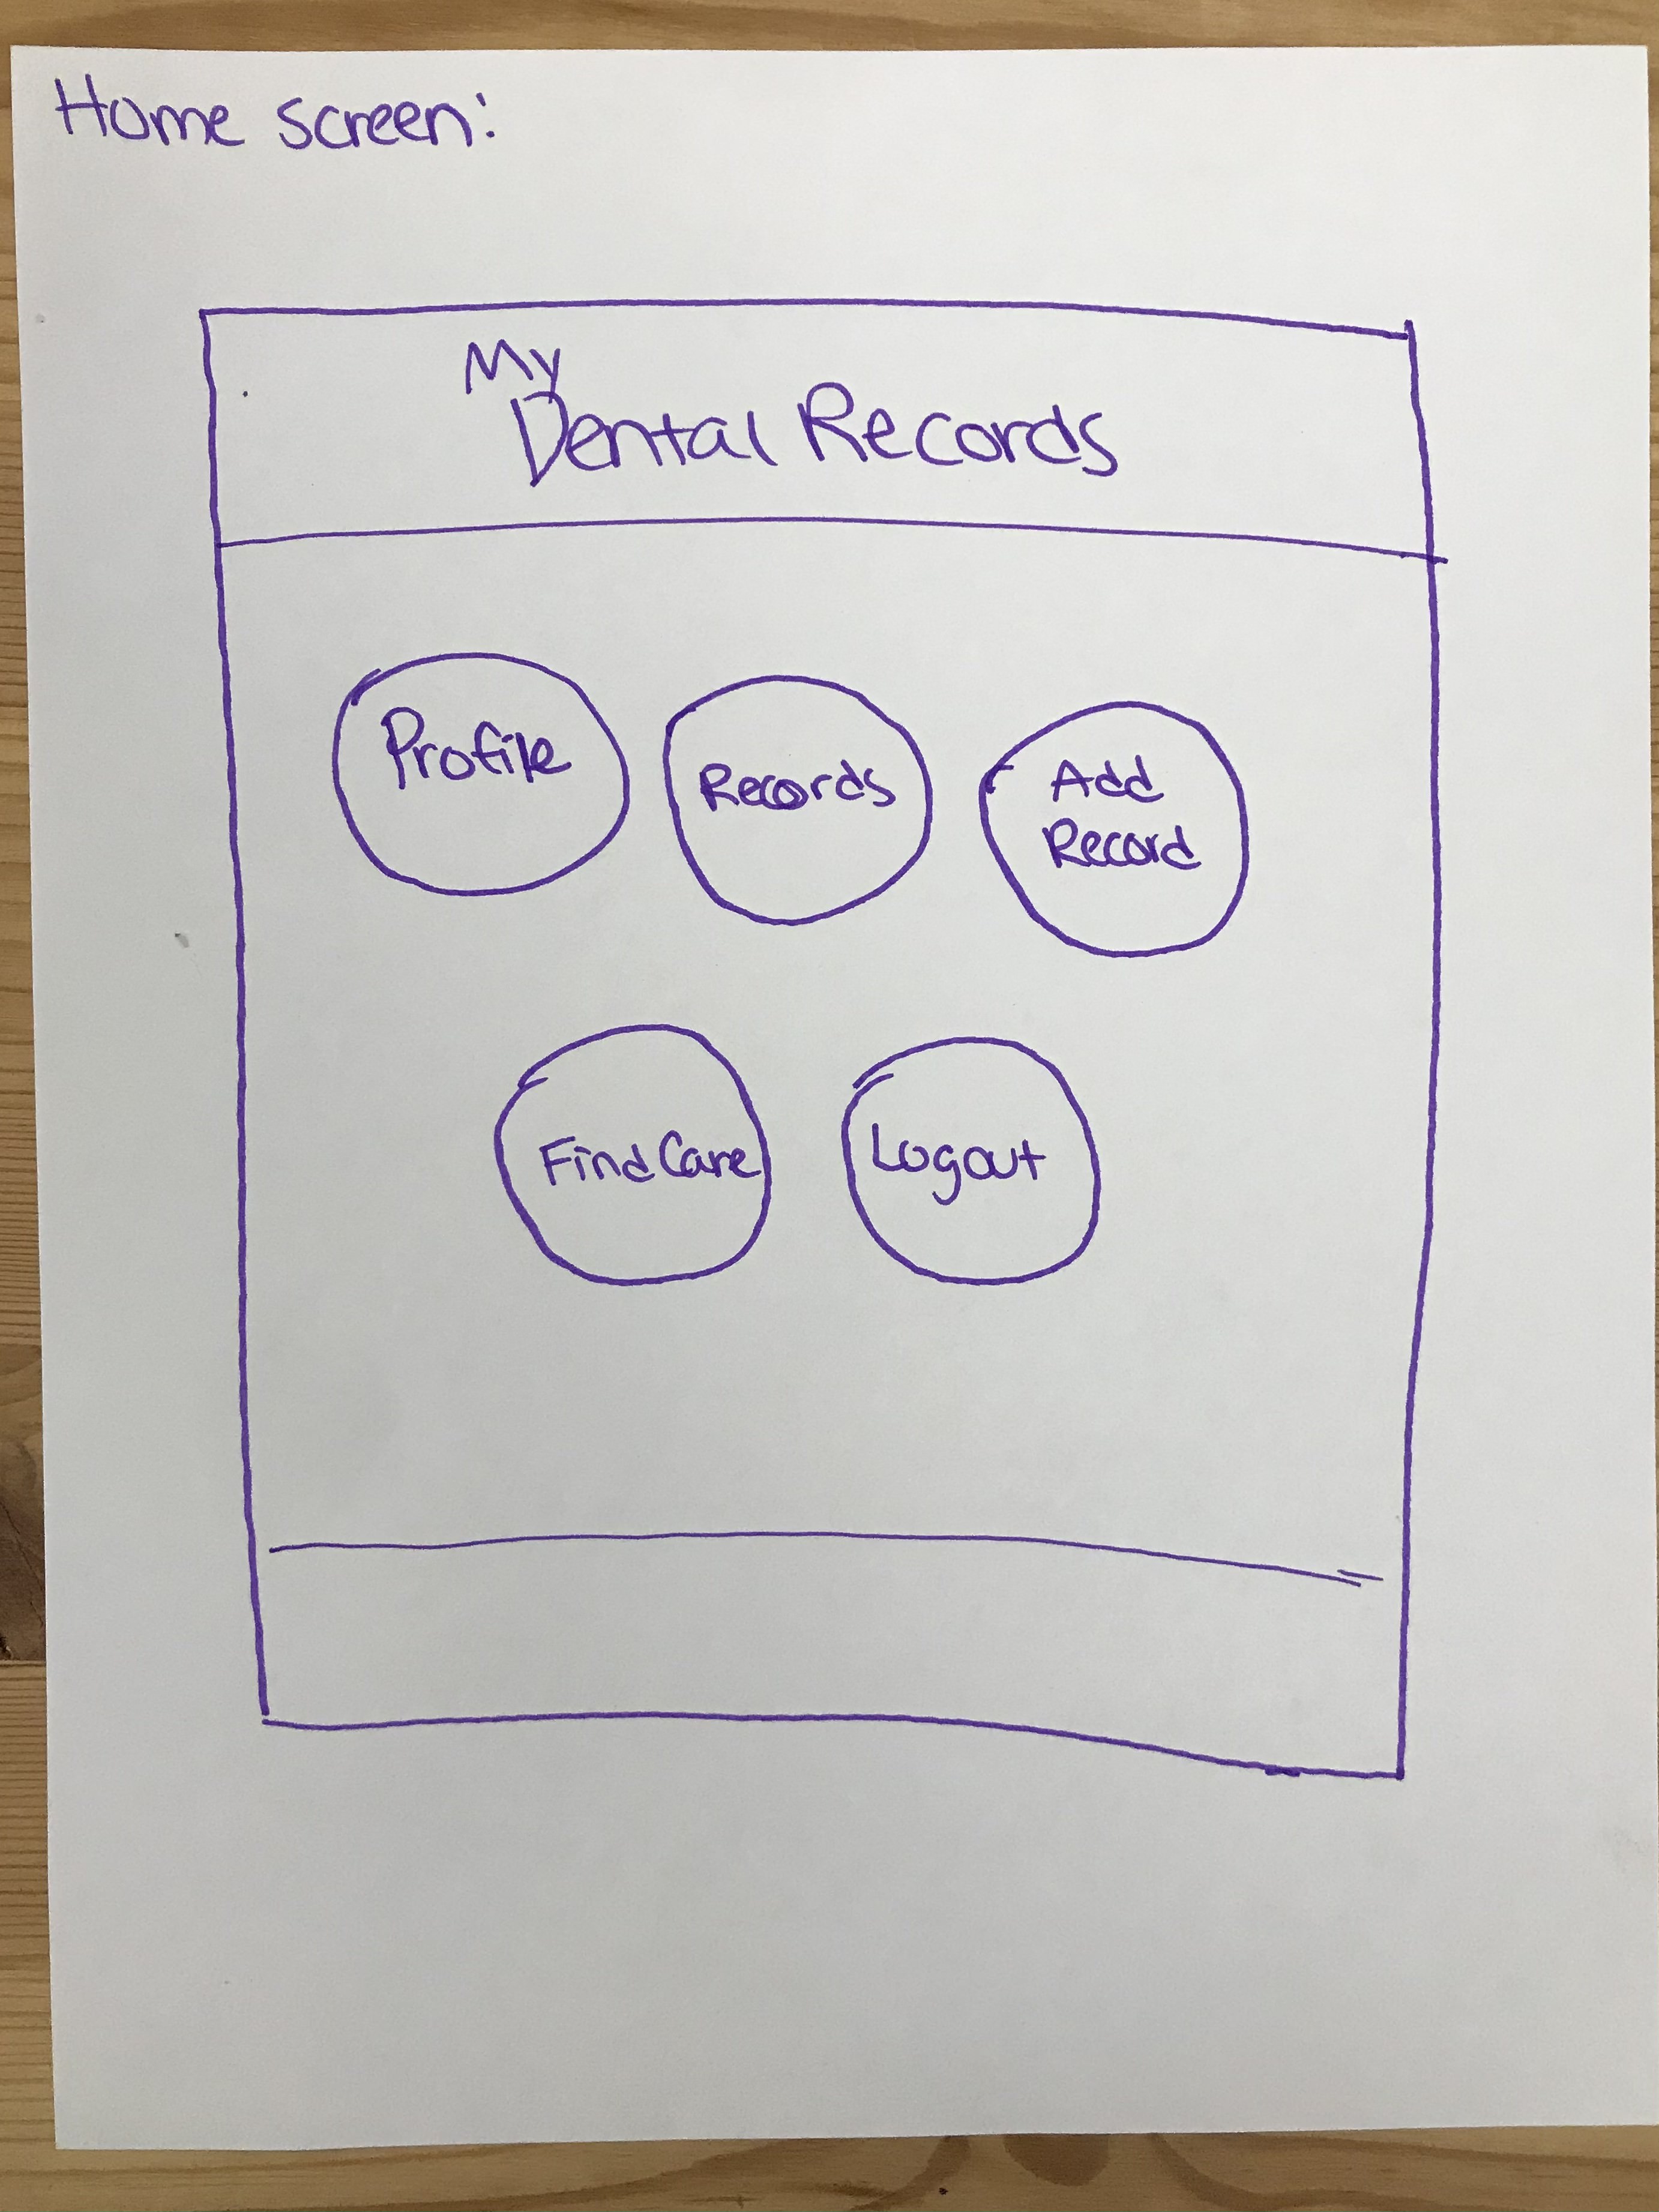 Home screen:
My
Dental Records
Profile
Records
Add
Record
Find Care
Logout